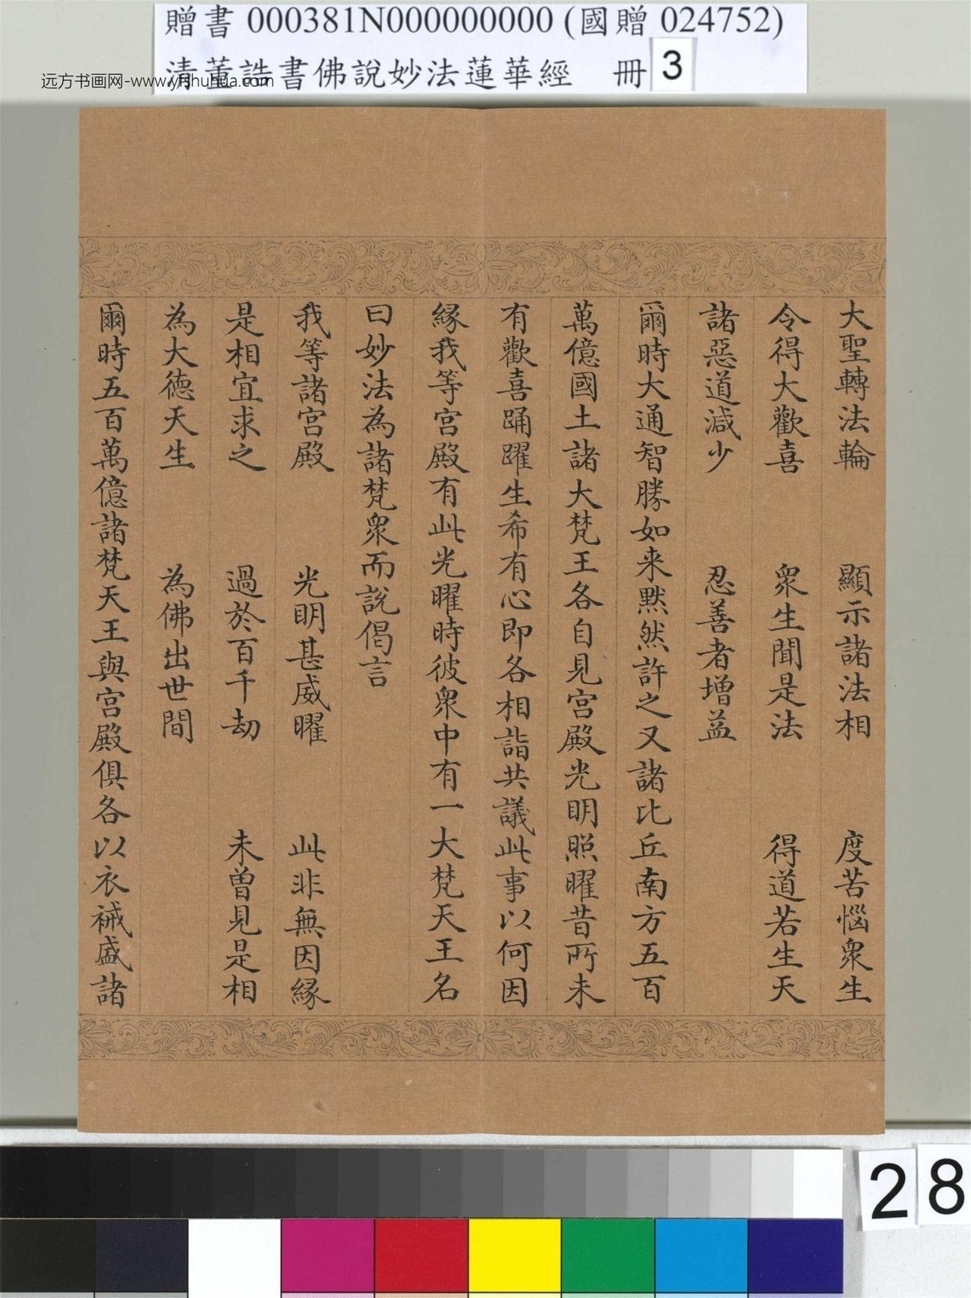 贈書 000381N000000000 (國贈 024752)
清董誥書佛說妙法蓮華經 冊 3
远方书画网-www.yfshuhua.com
大聖轉法輪 顯示諸法相 度苦惱衆生
令得大歡喜 衆生聞是法 得道若生天
諸惡道減少 忍善者增益
爾時大通智勝如来黙然許之又諸比丘南方五百
萬億國土諸大梵王各自見宮殿光明照曜昔所未
有歡喜踊躍生希有心即各相詣共議此事以何因
緣我等宮殿有此光曜時彼衆中有一大梵天王名
曰妙法為諸梵衆而說偈言
我等諸宮殿 光明甚威曜 此非無因緣
是相宜求之 過於百千劫 未曾見是相
為大德天生 為佛出世間
爾時五百萬億諸梵天王與宮殿俱各以衣裓盛諸
28